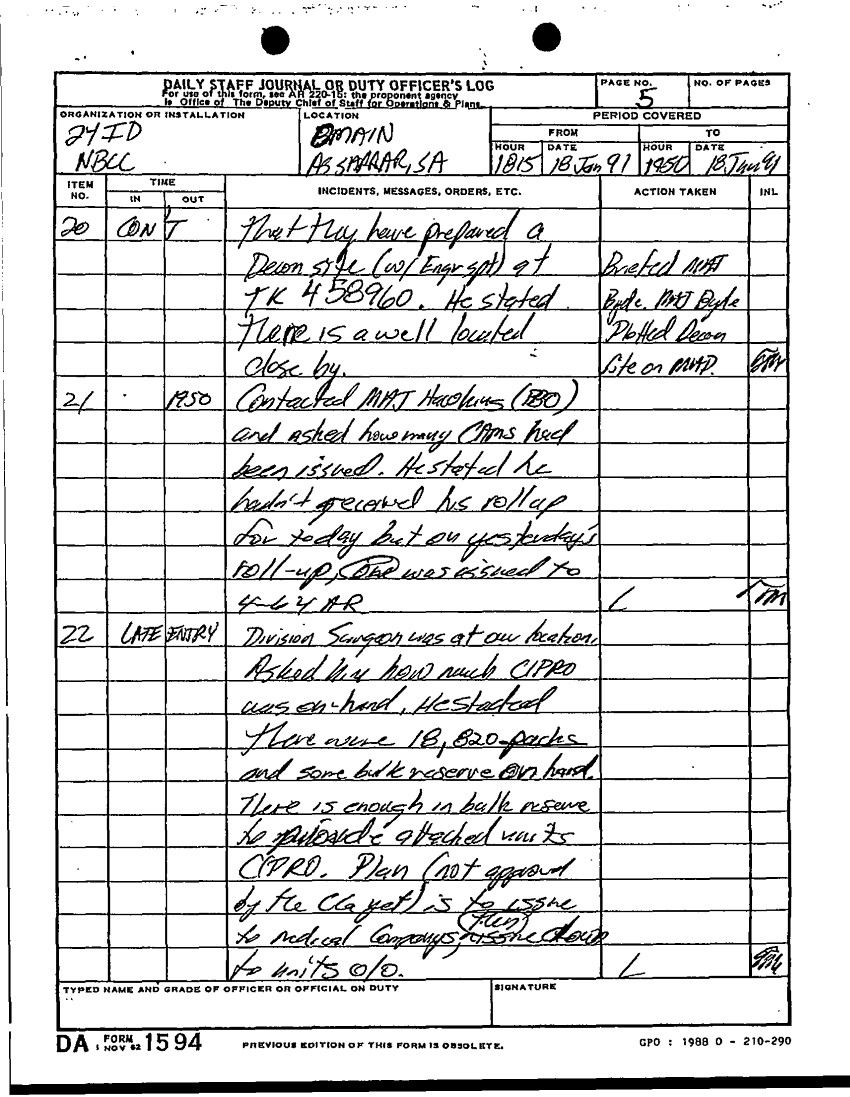 DAILY STAFF JOURNAL OR DUTY OFFICER'S LOG
For use of this form, see AR 220-15; the proponent agency
is Office of The Deputy Chief of Staff for Operations & Plans.
PAGE NO.
5
NO. OF PAGES
ORGANIZATION OR INSTALLATION
24ID
NBCC
LOCATION
DMAIN
ASSARRAR, SA
PERIOD COVERED
FROM
TO
HOUR
DATE
HOUR
DATE
1815
18 Jan 91
1950
18 Jan 91
ITEM NO.
TIME
IN
OUT
INCIDENTS, MESSAGES, ORDERS, ETC.
ACTION TAKEN
INL
20 CON'T That they have prepared a
Decon site (w/ Engr spt) at Briefed MAJ
TK 458960. He stated MAJ Byde
There is a well located Plotted Decon
close by. Site on MAP.
21 1950 Contacted MAJ Hawkins (BBO)
and asked how many CAMs had
been issued. He stated he
hadn't received his rollup
for today but on yesterday's
roll-up, one was issued to
4-64 AR L
22 LATE ENTRY Division Surgeon was at our location.
Asked him how much CIPRO
was on-hand, He stated
there were 18,820-packs
and some bulk reserve on hand.
There is enough in bulk reserve
to provide attached units
CIPRO. Plan (not approved
by the CG yet) is to issue
to medical Companys, then issue down
to units o/o. L
TYPED NAME AND GRADE OF OFFICER OR OFFICIAL ON DUTY
SIGNATURE
DA FORM 1 NOV 62 1594
PREVIOUS EDITION OF THIS FORM IS OBSOLETE.
GPO : 1988 O - 210-290